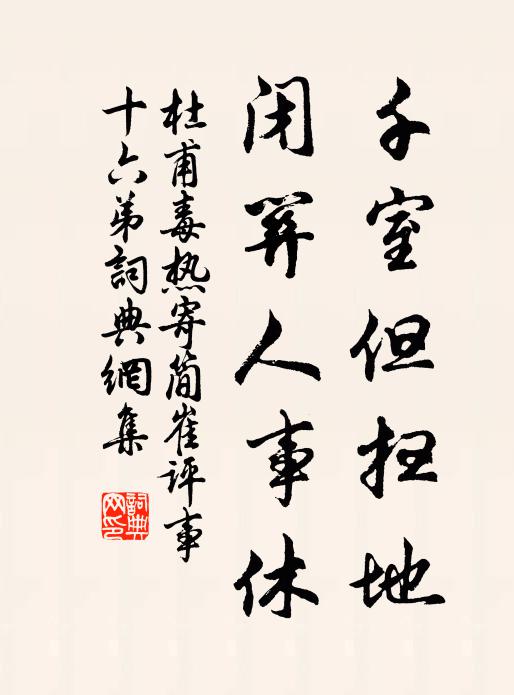 千室但扫地
闭关人事休
杜甫毒热寄简崔评事
十六弟词典網集
詞典网印